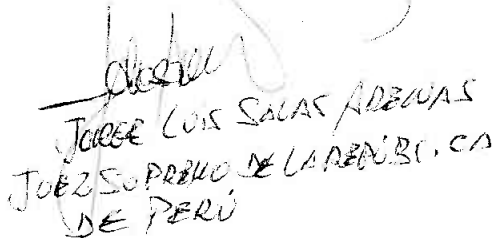 JORGE LUIS SALAS ARENAS
JUEZ SUPREMO DE LA REPÚBLICA
DE PERÚ